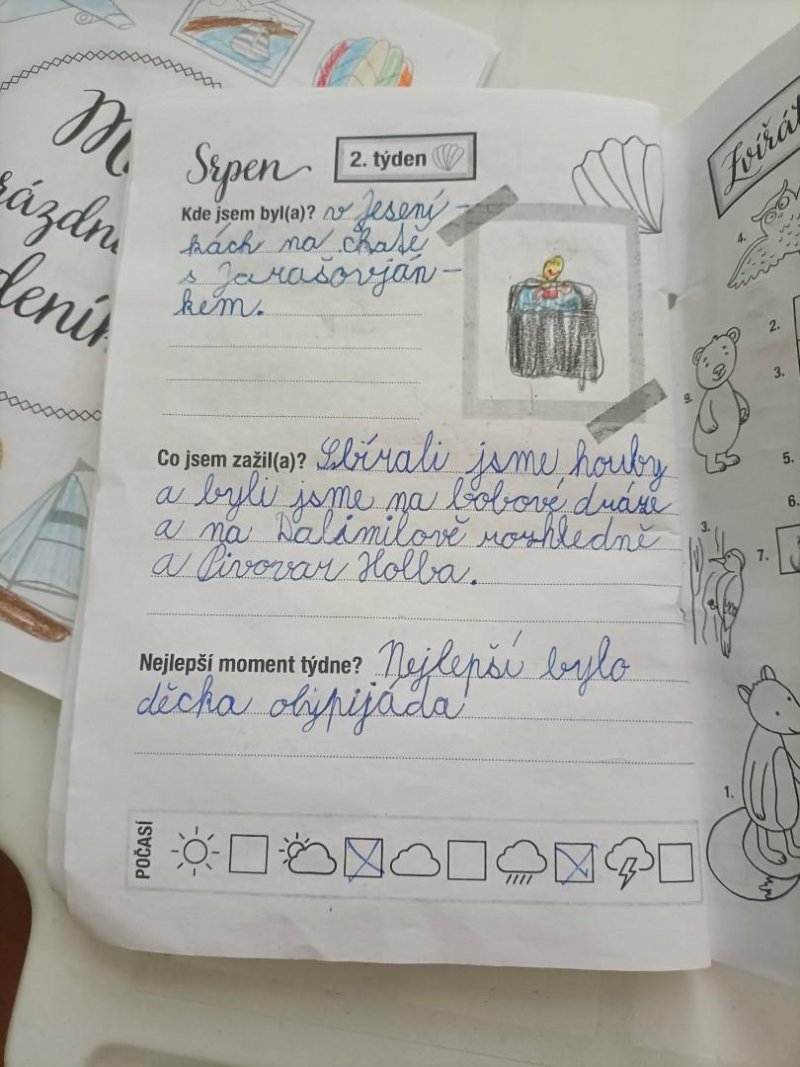 Srpen
2. týden
Kde jsem byl(a)? v Jesení-
kách na chatě
s Jarašovján-
kem.
Co jsem zažil(a)? Sbírali jsme houby
a byli jsme na bobové dráze
a na Dalimilově rozhledně
a Pivovar Holba.
Nejlepší moment týdne? Nejlepší bylo
děcka olypijáda
POČASÍ
4.
2.
9.
3.
5.
6.
3.
7.
1.